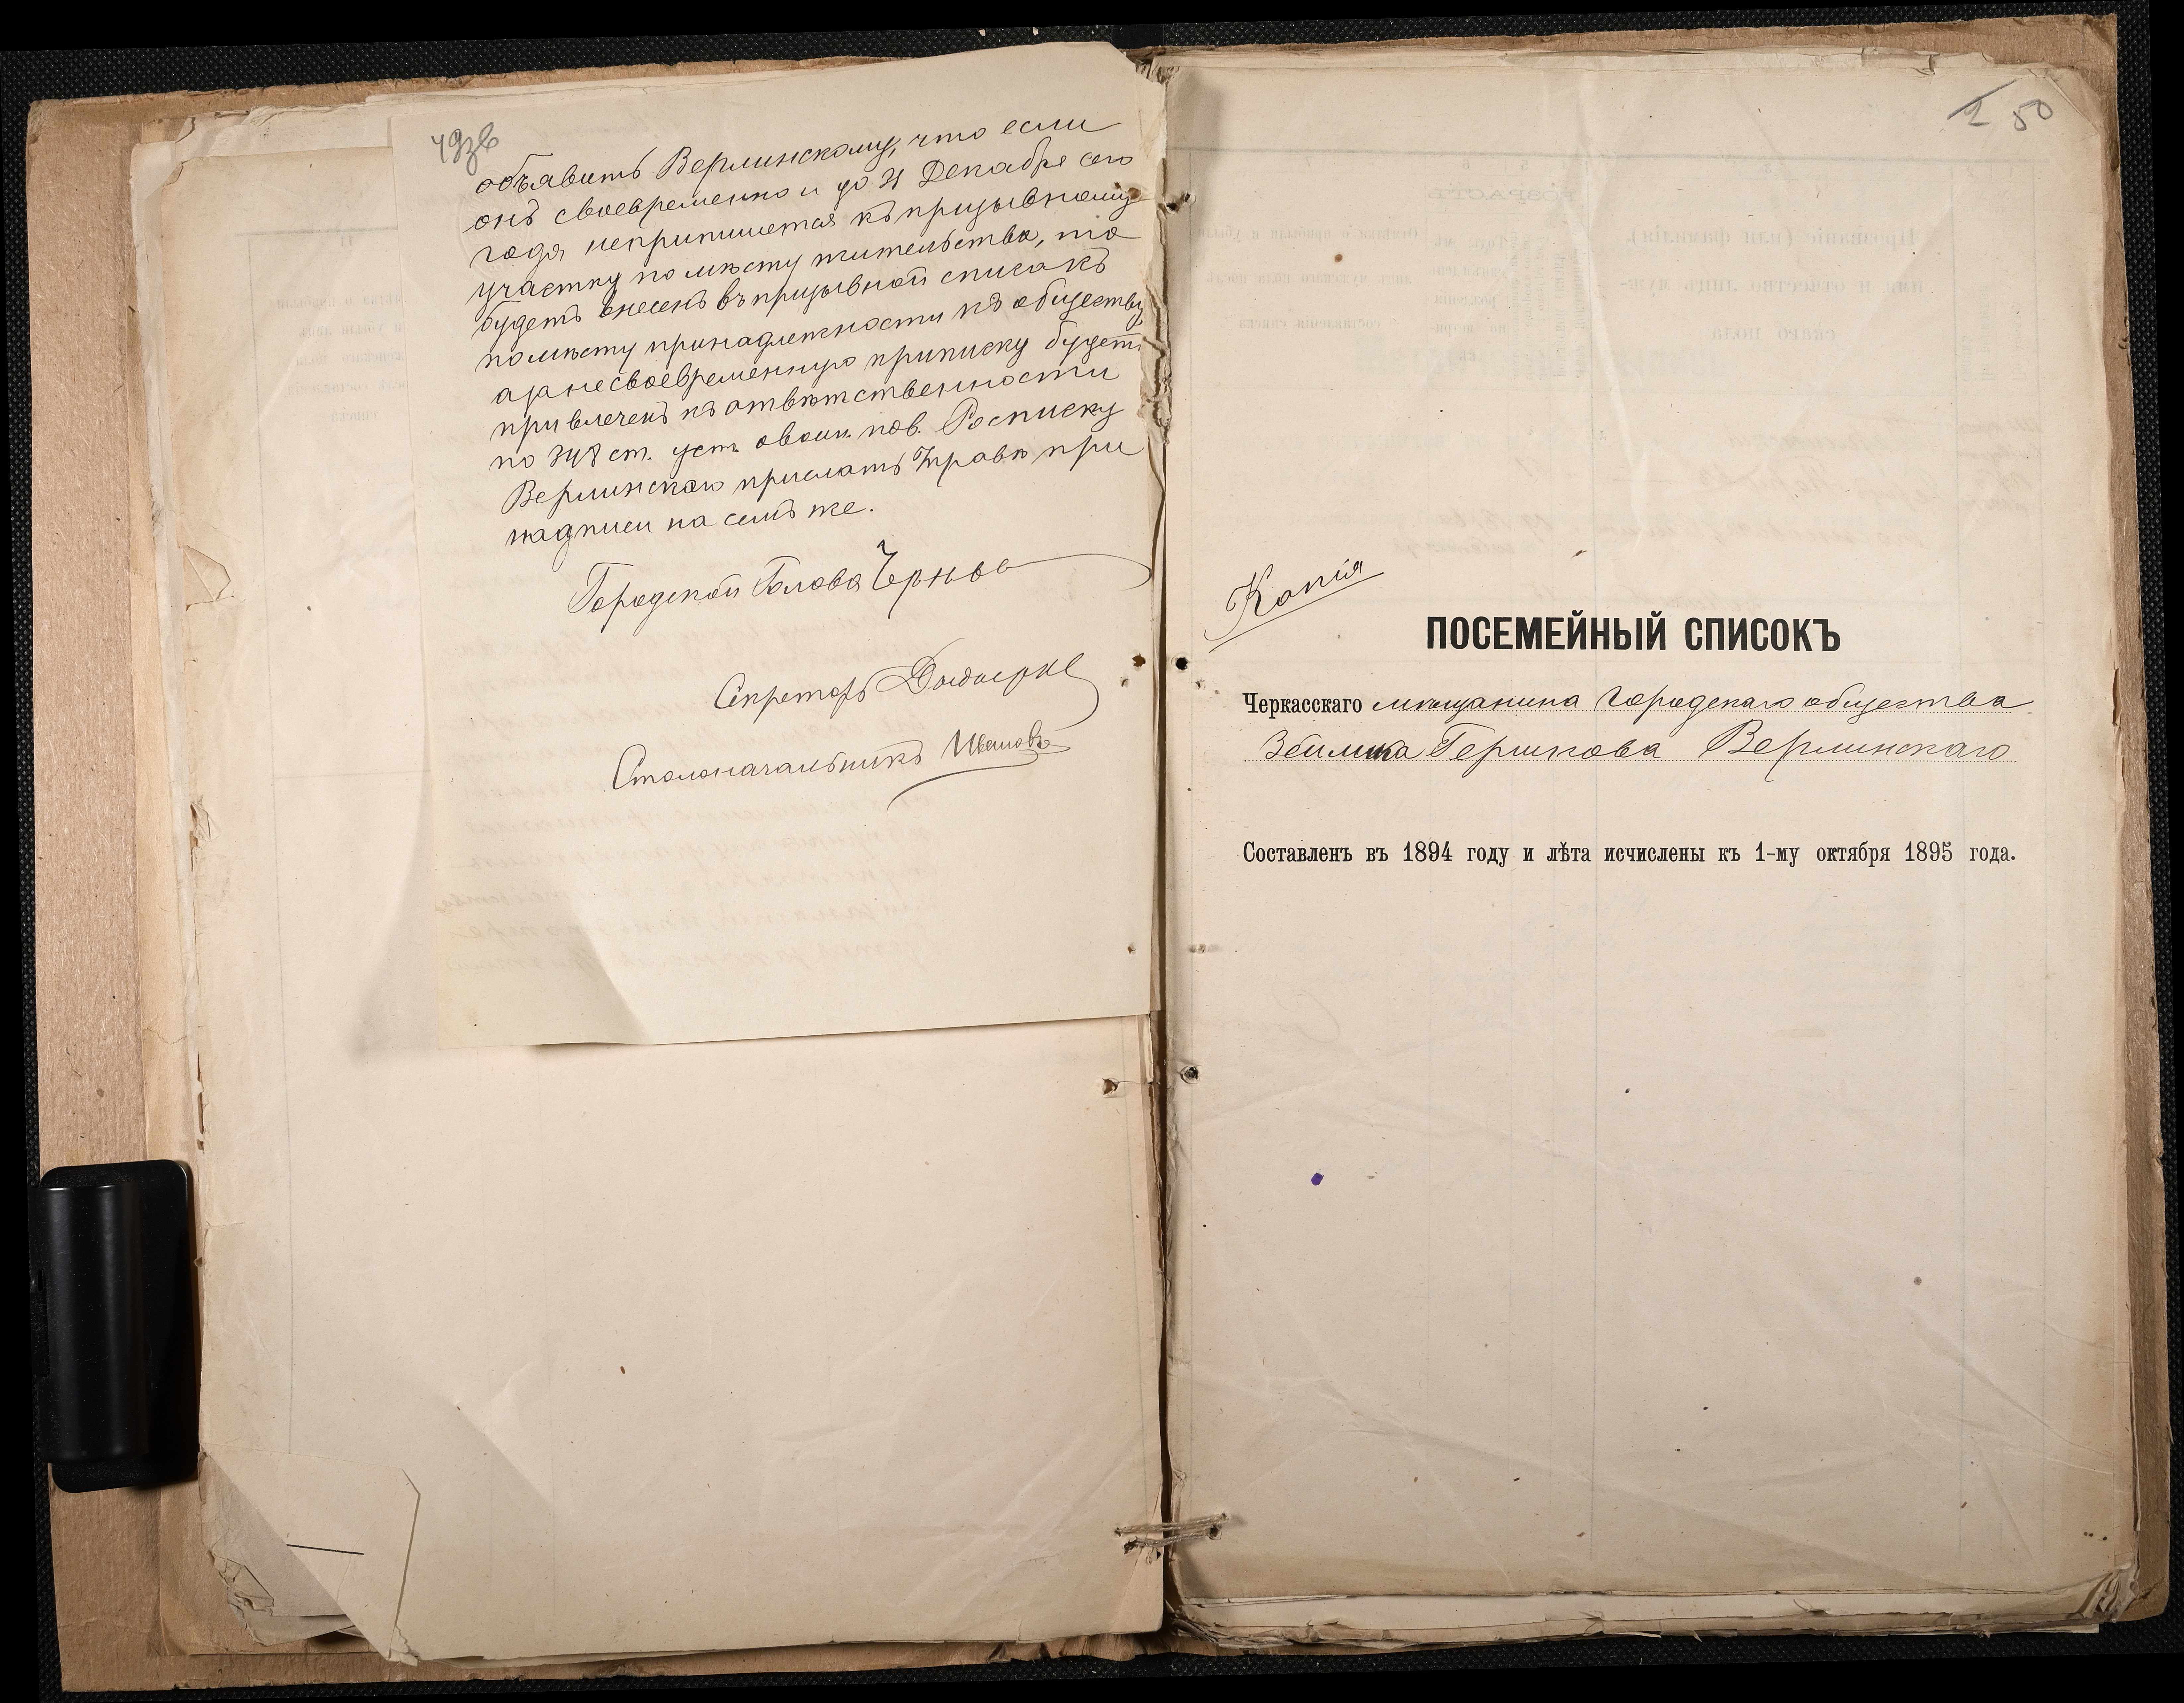 49зв
объявить Верлинскому, что если
онъ своевременно и до 31 Декабря сего
года неприпишется къ призывному
участку по мѣсту жительства, то
будетъ внесенъ въ призывной списокъ
по мѣсту принадлежности къ обществу,
а за несвоевременную приписку будетъ
привлеченъ къ отвѣтственности
по 348 ст. уст. о воин. пов. Росписку
Верлинскаго прислать Управѣ при
надписи на семъ же.
Городской Голова
Секретарь
Столоначальникъ Ивановъ
1 50
Копія
ПОСЕМЕЙНЫЙ СПИСОКЪ
Черкасскаго мѣщанина городскаго общества
Гершкова Верлинскаго
Составленъ въ 1894 году и лѣта исчислены къ 1-му октября 1895 года.